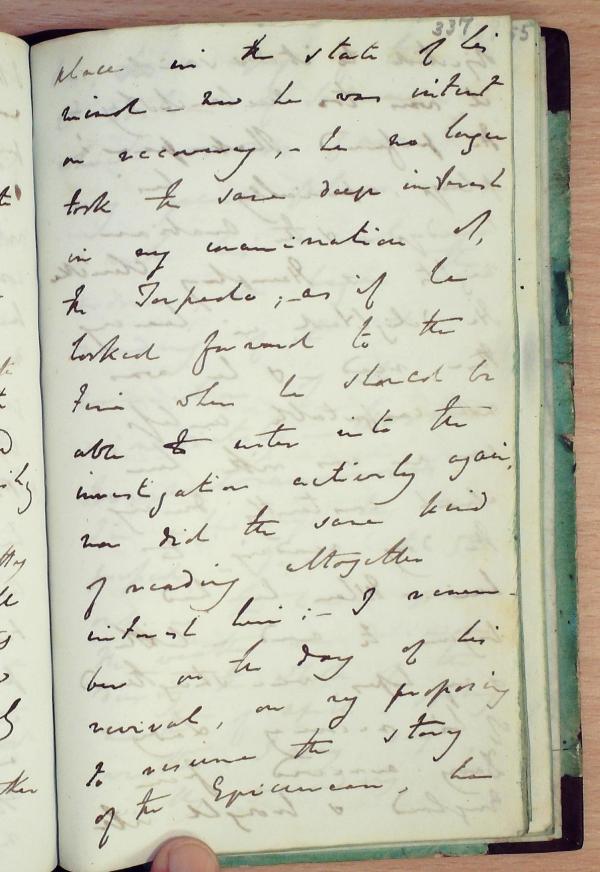 337 55
place in the state of his
mind – now he was intent
on recovery, – he no longer
took the same deep interest
in my examination of,
the Torpedo; – as if he
looked forward to the
time when he should be
able to enter into the
investigation actively again,
nor did the same kind
of reading altogether
interest him; – I remem-
ber on the day of his
revival, on my proposing
to resume the story
of the Epicurean, he